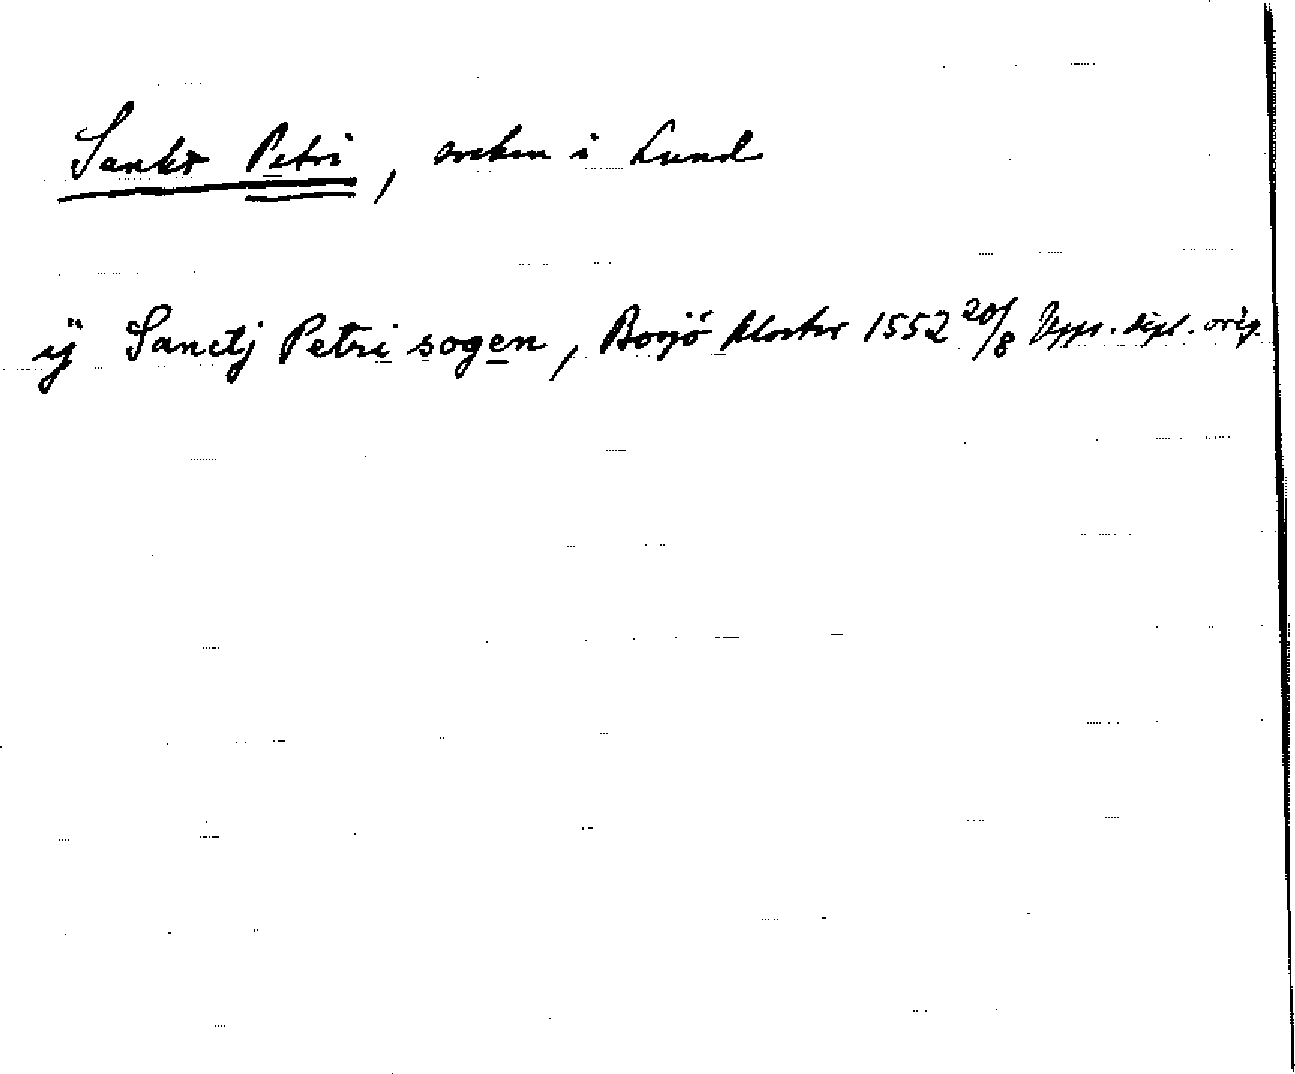 Sankt Petri, socken i Lund
ÿ Sanctj Petri sogen, Bosjö kloster 1552 20/8 Upps. dipl. orig.